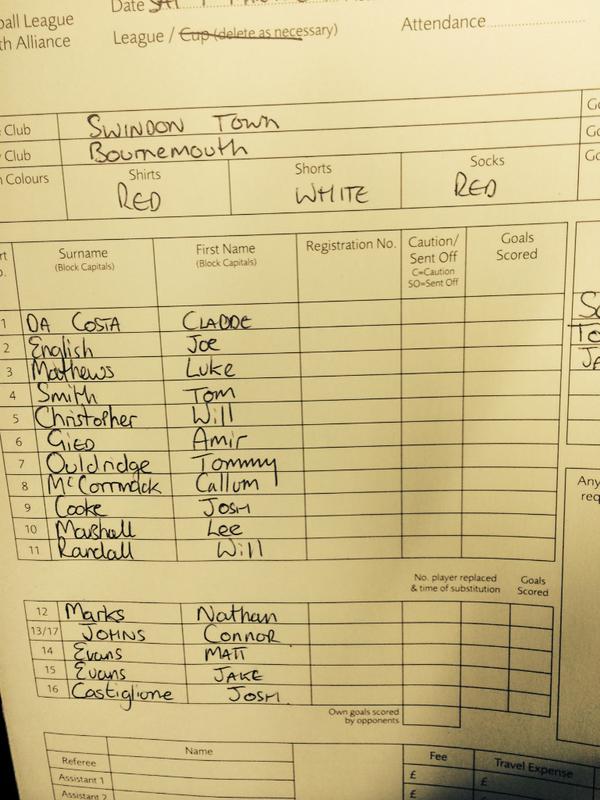 ball League
th Alliance
Date
League / Cup (delete as necessary)
Attendance
Club SWINDON TOWN
Club Bournemouth
Colours Shirts Shorts Socks
RED WHITE RED
Surname First Name Registration No. Caution/ Goals
(Block Capitals) (Block Capitals) Sent Off Scored
C=Caution
SO=Sent Off
1 DA COSTA CLADDE
2 English Joe
3 Mathews Luke
4 Smith Tom
5 Christopher Will
6 GIED Amir
7 Ouldridge Tommy
8 McCormack Callum
9 Cooke JOSH
10 Marshall Lee
11 Randall Will
No. player replaced Goals
& time of substitution Scored
12 Marks Nathan
13/17 JOHNS CONNOR
14 Evans MATT
15 Evans JAKE
16 Castiglione JOSH
Own goals scored
by opponents
Any
req
Name Fee Travel Expense
Referee £ £
Assistant 1 £
Assistant 2